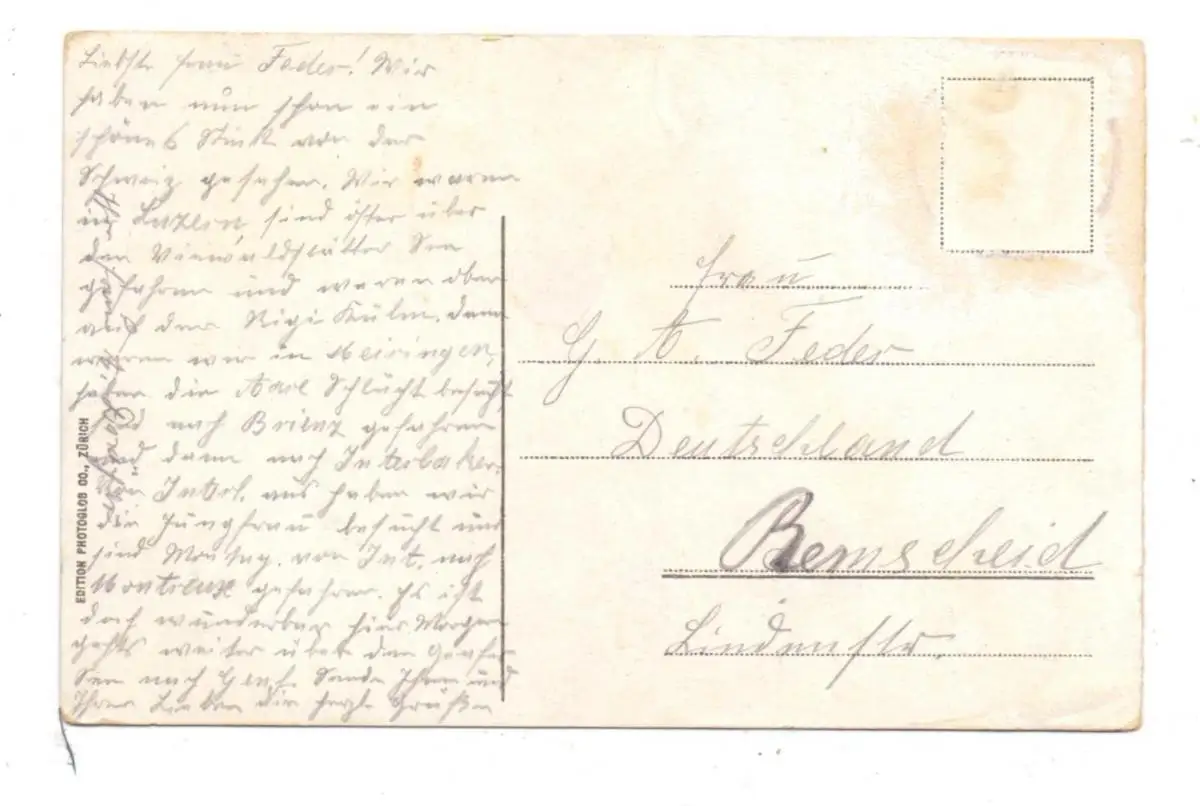 Liebste Frau Feder! Wir
haben nun schon ein
schönes Stück von der
Schweiz gesehen. Wir waren
in Luzern, sind öfter über
den Vierwaldstätter See
gefahren und waren oben
auf der Rigi Kulm. Dann
waren wir in Meiringen,
haben die Aare Schlucht besucht
nach Brienz gefahren
und dann nach Interlaken.
Von Interl. aus haben wir
die Jungfrau besucht und
sind Montag. von Int. nach
Montreux gefahren. Es ist
doch wunderbar hier. Morgen
gehts weiter über den Genfer
See nach Genf. Sende Ihnen und
Ihren Lieben die herzl. Grüße
EDITION PHOTOGLOB CO., ZÜRICH
Frau
G. A. Feder
Deutschland
Remscheid
Lindenstr.